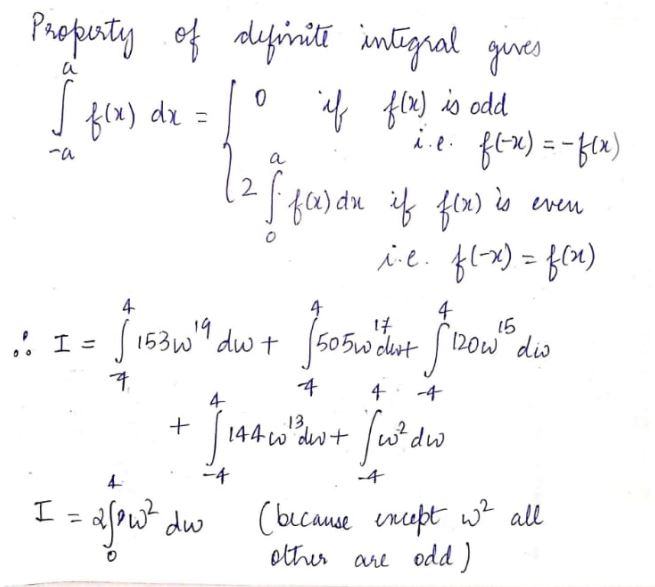 Property of definite integral gives
∫_{-a}^{a} f(x) dx = { 0 if f(x) is odd
i.e. f(-x) = -f(x)
2 ∫_{0}^{a} f(x) dx if f(x) is even
i.e. f(-x) = f(x)
∴ I = ∫_{-4}^{4} 153w^{19} dw + ∫_{-4}^{4} 505w^{17} dw + ∫_{-4}^{4} 120w^{15} dw
+ ∫_{-4}^{4} 144w^{13} dw + ∫_{-4}^{4} w^{2} dw
I = 2∫_{0}^{4} w^{2} dw (because except w^{2} all
other are odd)